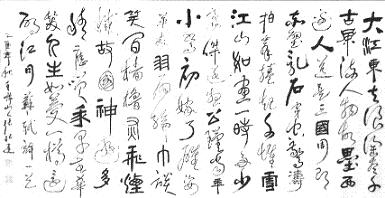 大江東去浪淘盡千
古風流人物故壘西
邊人道是三國周郎
赤壁亂石穿空驚濤
拍岸捲起千堆雪
江山如畫一時多少
豪傑遙想公瑾當年
小喬初嫁了雄姿
英發羽扇綸巾談
笑間檣櫓灰飛煙
滅故國神遊多
情應笑我早生華
髮人生如夢一樽還
酹江月 蘇軾詞